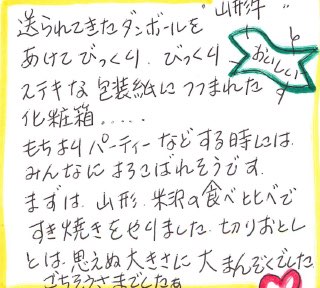 "山形牛"
送られてきたダンボールを
あけてびっくり、びっくり
おいしい
ステキな包装紙につつまれた
化粧箱.....
もちよりパーティーなどする時には
みんなによろこばれそうです。
まずは、山形、米沢の食べ比べで
すき焼きをやりました。切りおとし
とは、思えぬ大きさに大まんぞくでした。
ごちそうさまでしたぁ